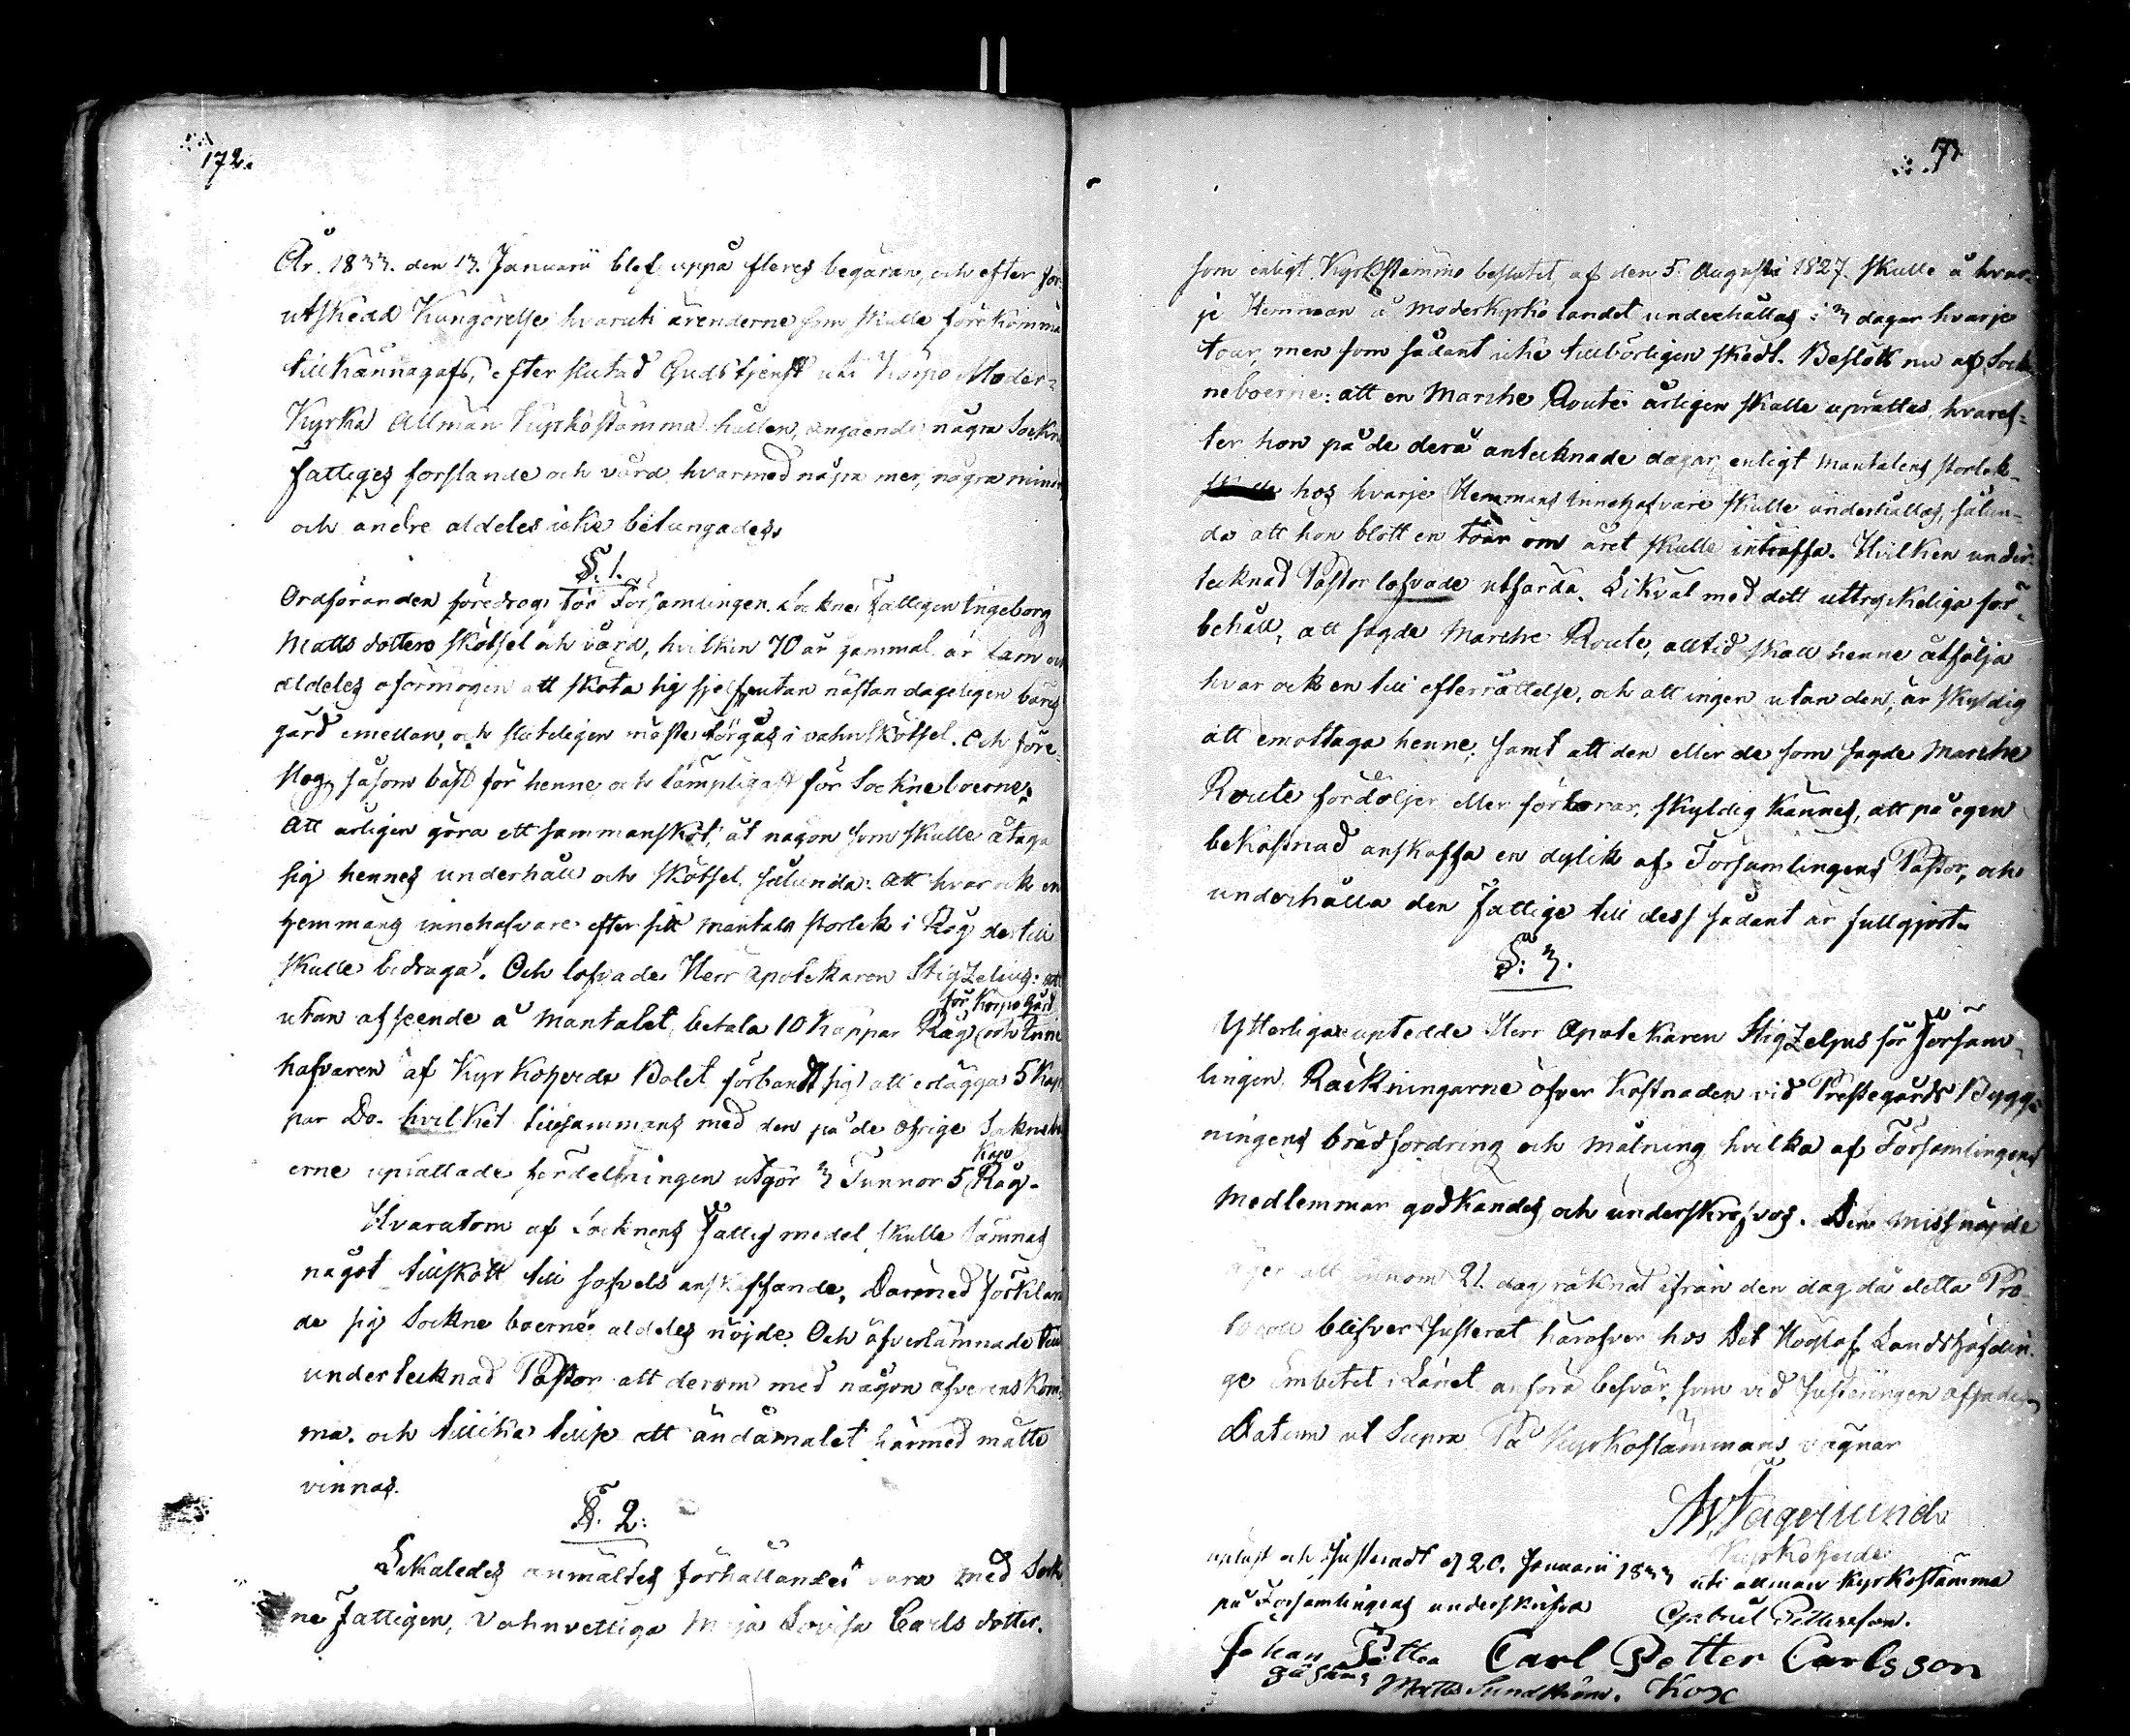 172.
År. 1833. den 13. Januarii blef uppå fleres begäran, och efter för-
utskedd Kungörelse hvaruti ärenderne som skulle förekomma
tillkännagafs, efter slutad Gudstjenst uti Korpo Moder-
Kyrka Allmän Kyrkostämma hållen, angående några Sockne
fattiges förslande och vård, hvarmed några mer, några mindre
och andre aldeles icke betungades.
§. 1.
Ordföranden föredrog för Församlingen Sockne Fattigen Ingeborg
Matts dotters skötsel och vård, hvilken 70 år gammal är lam och
aldeles oförmögen att sköta sig sjelf, utan nästan dageligen bäres
gård emellan, och sluteligen måste förgås i vahnskötsel. Och före-
slog, såsom bäst för henne och lämpligast för Sockneboerne;
Att årligen göra ett sammanskot, åt någon som skulle åtaga
sig hennes underhåll och skötsel sålunda: Att hvar och en
hemmans innehafvare efter sitt mantals storlek i Råg dertill
skulle bidraga. Och lofvade Herr Apotekaren Stigzelius: att
utan afseende å Mantalet, betala 10 Kappar Råg för Korpo Gård och Inne
hafvaren af Kyrkoherde Bolet förbandt sig att erlägga 5 Kap-
par Do. hvilket tillsammans med den på de öfrige Sokneboe
erne uprättade fördelningen utgör 3 Tunnor 5 Kapp Råg.
Hvarutom af Socknens Fattig medel skulle lämnas
något tillskott till sofvels anskaffande, Darmed förklara
de sig Sockne boerne aldeles nöjde. Och öfverlämnade till
undertecknad Pastor att derom med någon öfverens kom-
ma. och tillika tillse att ändamålet härmed måtte
vinnas.
§. 2.
Likaledes anmältes förhållandet vara med Sock
ne Fattigen, Vahnvettiga Maja Lovisa Carls dotter.
173
som enligt Kyrkstämmo beslutet af den 5 Augusti 1827. skulle å hvar-
je Hemman å Moderkyrko landet underhållas i 3 dagar hvarje
tour, men som sådant icke tillbörligen skedt. Beslöts nu af Sock
neboerne: att en Marche Route årligen skulle uprättas, hvaref-
ter hon på de derå antecknade dagar enligt Mantalens storlek-
hos hvarje Hemmans Innehafvare skulle underhållas, sålun-
da att hon blott en tour om året skulle inträffa. Hvilken under-
tecknad Pastor lofvade utfärda. Likväl med det uttryckeliga för-
behåll, att sagde Marche Route, alltid skall henne åtfölja
hvar och en till efterrättelse, och att ingen utan den, är skyldig
att emottaga henne; samt att den eller de som sagde Marche
Route fördöljer eller förlorar, skyldig kännes, att på egen
bekostnad anskaffa en dylik af Församlingens Pastor, och
underhålla den Fattige till dess sådant är fullgjort.
§. 3.
Ytterligare uptedde Herr Apotekaren Stigzelius för Försam-
lingen, Räkningarne öfver Kostnaden vid Prestegårds Bygg-
ningens brädfordring och målning hvilka af Församlingens
Medlemmar godkändes och underskrefvos. Den missnöjde
äger att innom 21. dag räknat ifrån den dag då detta Pro-
tocoll blifver Justerat härofver hos Det Höglof. Landshöfdin-
ge Embetet i Länet anföra besvär, som vid Justeringen afsades
Datum ut Supra På Kyrkostämmans vägnar
Fagerlund
Kyrkoherde
uplast och Justeradt d 20. Januarii 1833 uti allman Kyrkostämma
på Församlingens underskrifva Gabriel Pettersson.
Johan Petter Carl Petter Carlsson
Matts Sundström. Kox